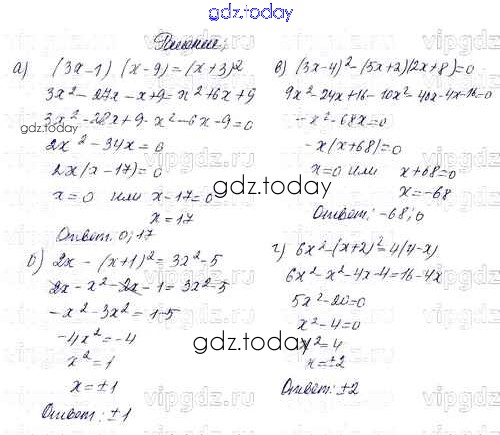 gdz.today
Решение:
а) (3x-1)(x-9)=(x+3)²
3x²-27x-x+9=x²+6x+9
3x²-28x+9-x²-6x-9=0
2x²-34x=0
2x(x-17)=0
x=0 или x-17=0
x=17
Ответ: 0; 17
б) 2x-(x+1)²=3x²-5
2x-x²-2x-1=3x²-5
-x²-3x²=1-5
-4x²=-4
x²=1
x=±1
Ответ: ±1
в) (3x-4)²-(5x+2)(2x+8)=0
9x²-24x+16-10x²-40x-4x-16=0
-x²-68x=0
-x(x+68)=0
x=0 или x+68=0
x=-68
Ответ: -68; 0
г) 6x²-(x+2)²=4(4-x)
6x²-x²-4x-4=16-4x
5x²-20=0
x²-4=0
x²=4
x=±2
Ответ: ±2
gdz.today
gdz.today
vipgdz.ru